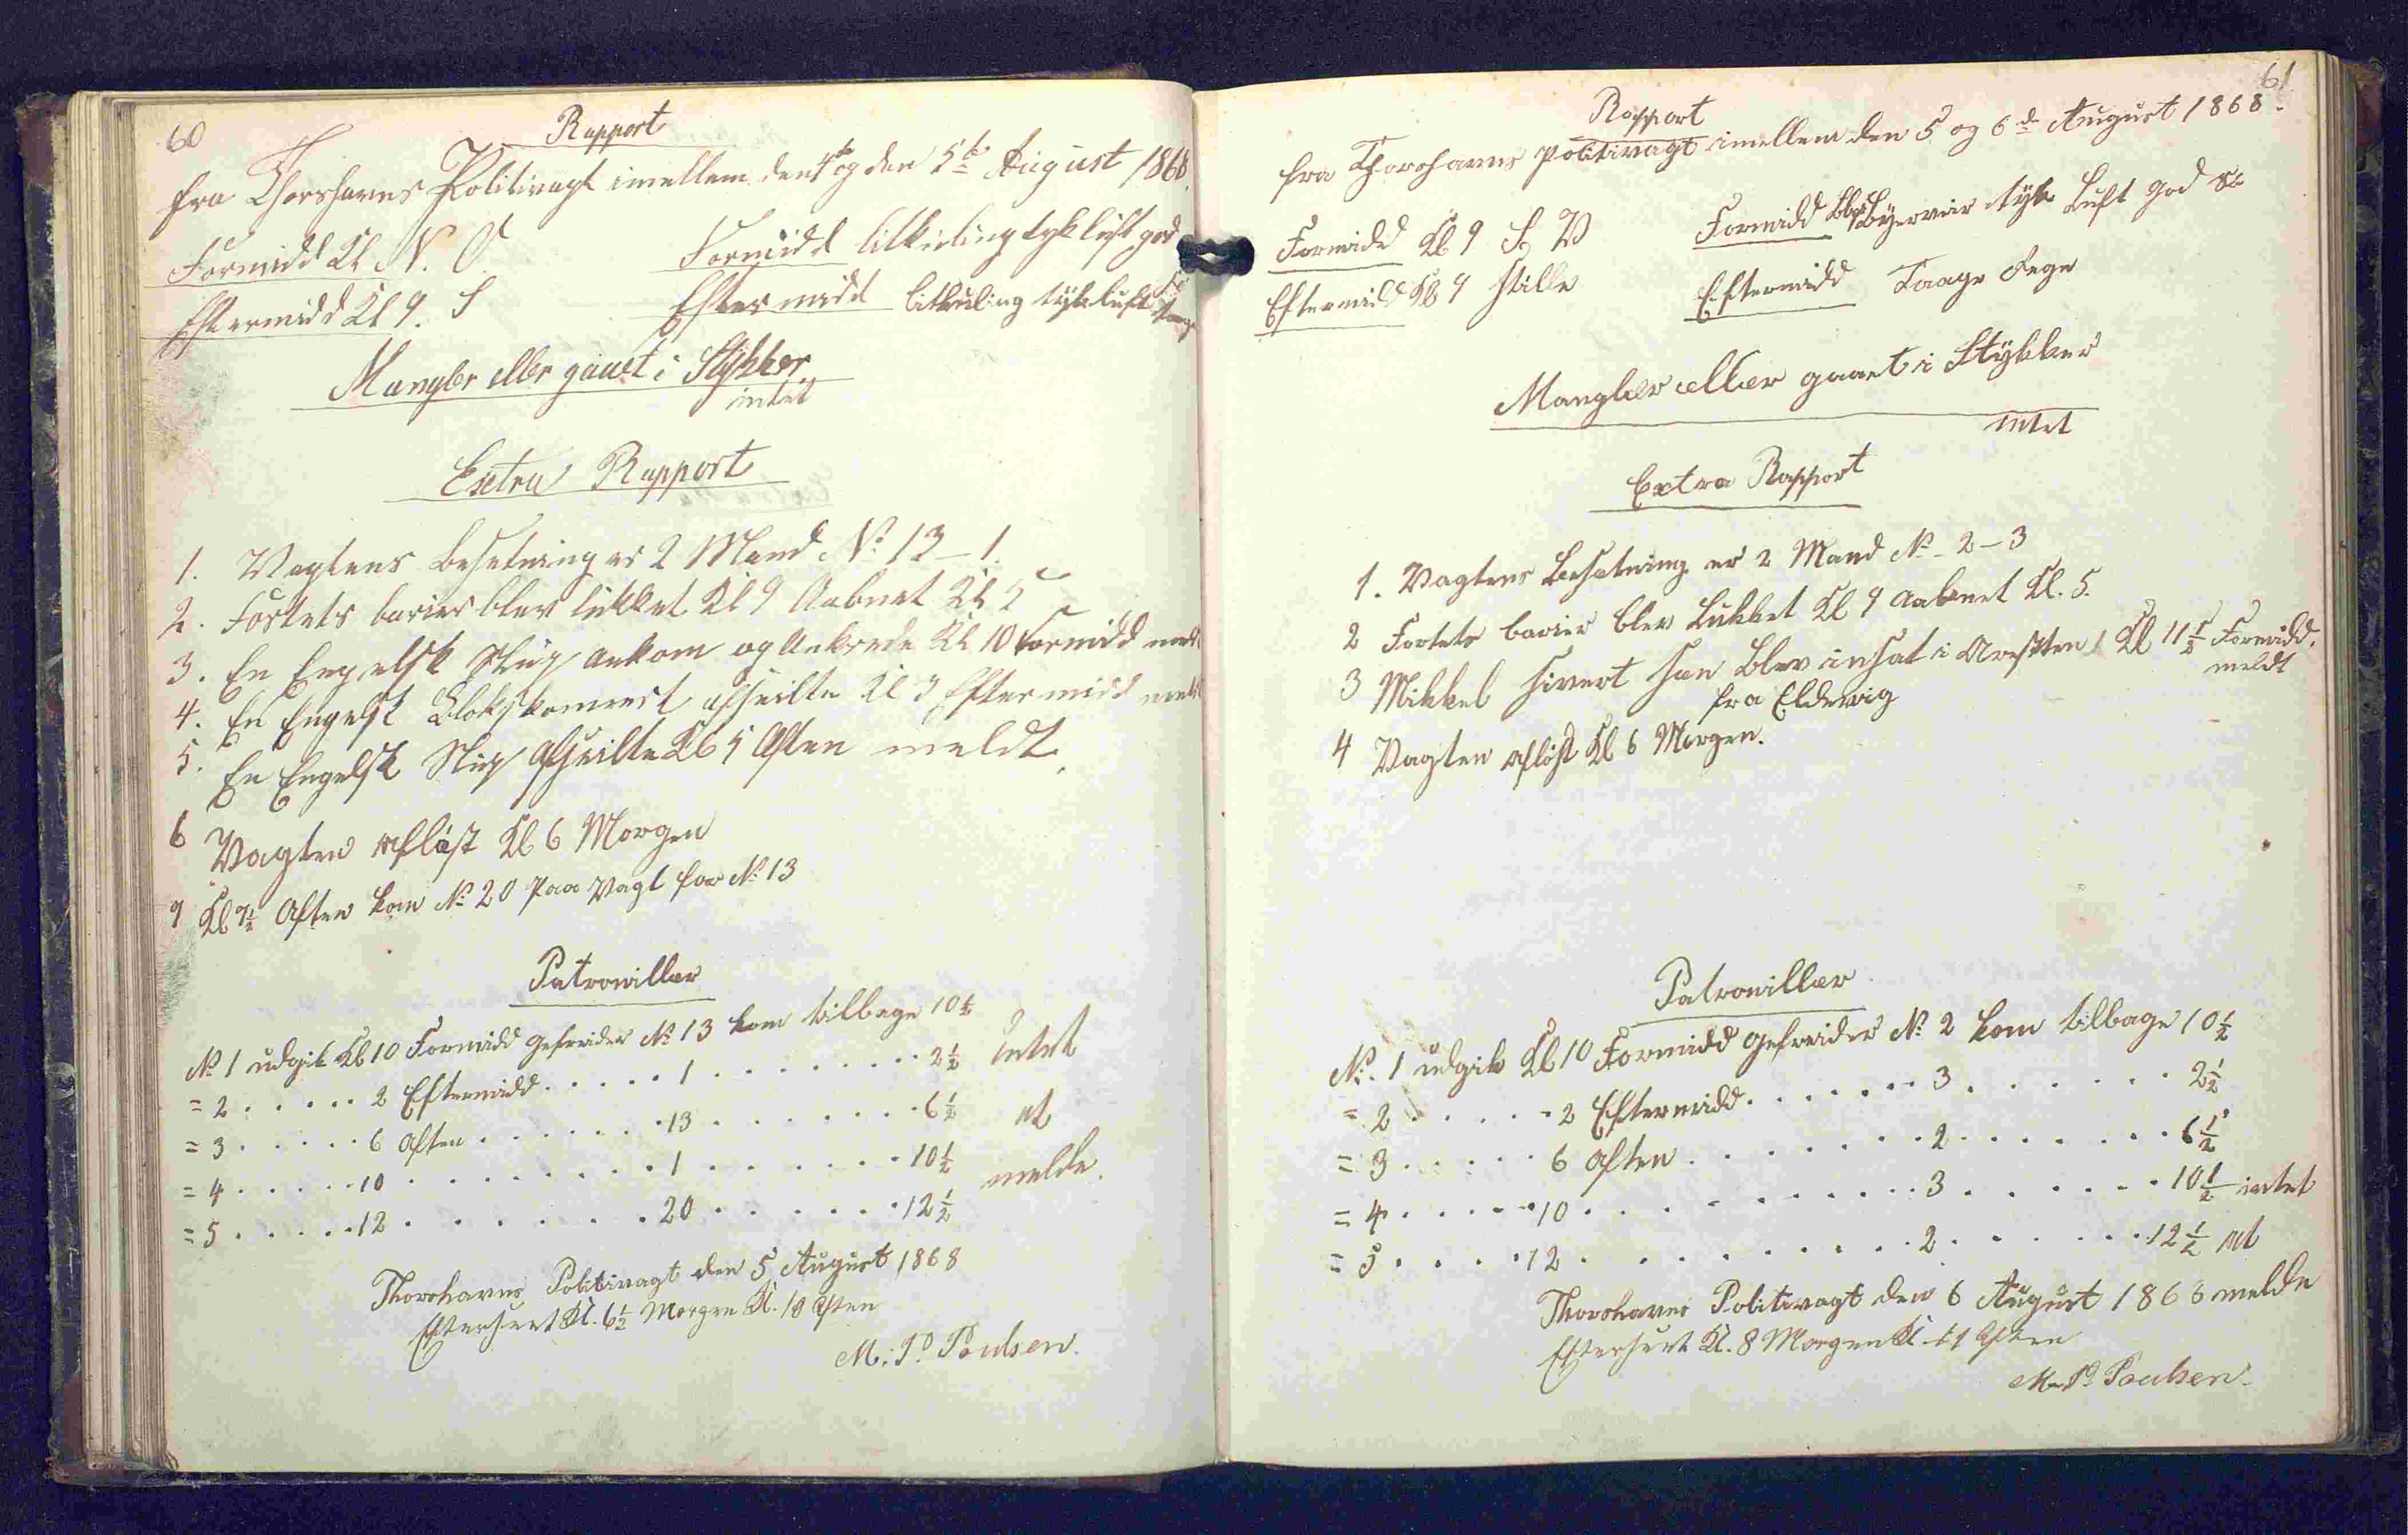 60
Rapport
fra Thorshavns Politivagt imellem den 4de og den 5te August 1868.
Formidd Kl N. O Formidd litkuling tyk luft god
Eftermidd Kl 9. S Eftermidd litkuling tyk luft Taage
Mangler eller gaaet i Stykker
intet
Extra Rapport
1. Vagtens Besetning er 2 Mand No 13 - 1.
2. Fortets barier blev lukket Kl 9 Aabnet Kl 5
3. En Engelsk Slup ankom og Ankrede Kl 10 Formidd meldt
4. En Engelsk afseilte Kl 3 Eftermidd meldt
5. En Engelsk Slup afseilte Kl 5 Aften meldt.
6 Vagten afløst Kl 6 Morgen
7 Kl 7½ Aften kom No 20 paa Vagt for No 13
Patrouiller
No 1 udgik Kl 10 Formidd gefreider No 13 kom tilbage 10½
= 2 . . . . . 2 Eftermidd . . . . . 1 . . . . . . . 2½ intet
= 3 . . . . . 6 Aften . . . . . . . 13 . . . . . . . 6½ at
= 4 . . . . . 10 . . . . . . . . 1 . . . . . . . 10½ melde.
= 5 . . . . . 12 . . . . . . . 20 . . . . . . 12½
Thorshavns Politivagt den 5 August 1868
Efterseet Kl. 6½ Morgen Kl. 10 Aften
M. P. Poulsen.
61
Rapport
fra Thorshavns Politivagt imellem den 5 og 6de August 1868.
Formidd Kl 9 S, V Formidd Byerveir tyk Luft god
Eftermidd Kl 9 Stille Eftermidd Taage Regn
Mangler eller gaaet i Stykker
intet
Extra Rapport
1. Vagtens Besatning er 2 Mand No - 2 - 3
2 Fortets barier blev Lukket Kl 9 Aabnet Kl. 5.
3 Mikkel Sivert Sen Blev insat i Aresten Kl 11½ Formidd.
fra Eldevig meldt
4 Vagten afløst Kl 6 Morgen.
Patrouiller
No. 1 udgik Kl 10 Formidd Gefreider No 2 kom tilbage 10½
= 2 . . . . . 2 Eftermidd . . . . . . 3 . . . . . . . 2½
= 3 . . . . . 6 Aften . . . . . . . 2 . . . . . . . 6½
= 4 . . . . . 10 . . . . . . . . . 3 . . . . . . 10½ intet
= 5 . . . . . 12 . . . . . . . . . 2 . . . . . . 12½ at
Thorshavns Politivagt den 6 August 1868 melde
Efterseet Kl. 8 Morgen Kl 11 Aften
M. P. Poulsen.